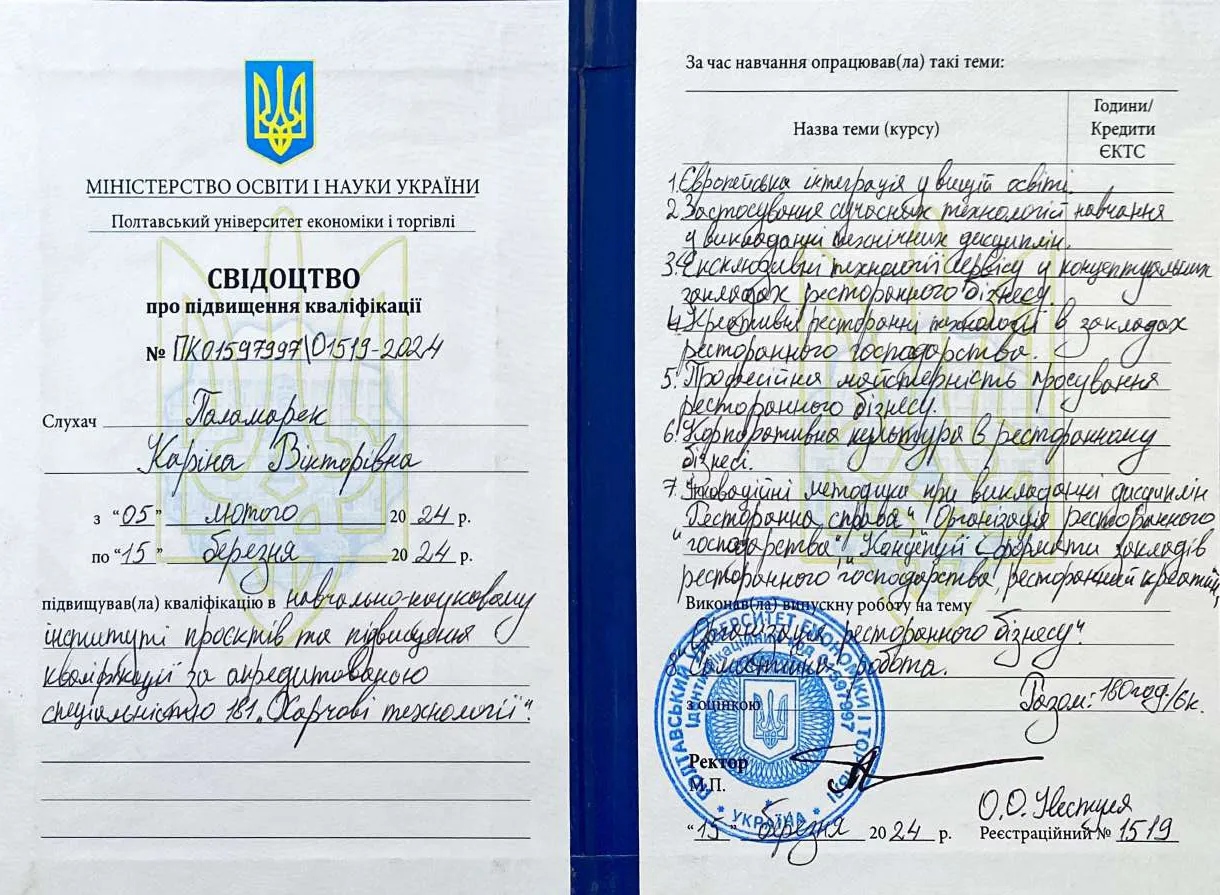 МІНІСТЕРСТВО ОСВІТИ І НАУКИ УКРАЇНИ
Полтавський університет економіки і торгівлі
СВІДОЦТВО
про підвищення кваліфікації
№ ПК01597997\01519-2024
Слухач Паламарек
Каріна Вікторівна
з "05" лютого 2024 р.
по "15" березня 2024 р.
підвищував(ла) кваліфікацію в навчально-науковому
інституті проєктів та підвищення
кваліфікації за акредитованою
спеціальністю 181 „Харчові технології".
За час навчання опрацював(ла) такі теми:
Назва теми (курсу)
Години/
Кредити
ЄКТС
1. Європейська інтеграція у вищій освіті.
2. Застосування сучасних технологій навчання
у викладанні технічних дисциплін.
3. Ексклюзивні технології сервісу у концептуальних
закладах ресторанного бізнесу.
4. Креативні ресторанні технології в закладах
ресторанного господарства.
5. Професійна майстерність просування
ресторанного бізнесу.
6. Корпоративна культура в ресторанному
бізнесі.
7. Інноваційні методики при викладанні дисциплін
"Ресторанна справа", "Організація ресторанного
господарства", "Концепції і формати закладів
ресторанного господарства, ресторанний креатив,
Виконав(ла) випускну роботу на тему
Організація ресторанного бізнесу".
8. Самостійна робота.
з оцінкою
Разом: 180 год./6к.
ПОЛТАВСЬКИЙ УНІВЕРСИТЕТ ЕКОНОМІКИ І ТОРГІВЛІ
Ідентифікаційний код 01597997
* УКРАЇНА *
Ректор
М.П.
О.О. Нестуля
"15" березня 2024 р.
Реєстраційний № 1519